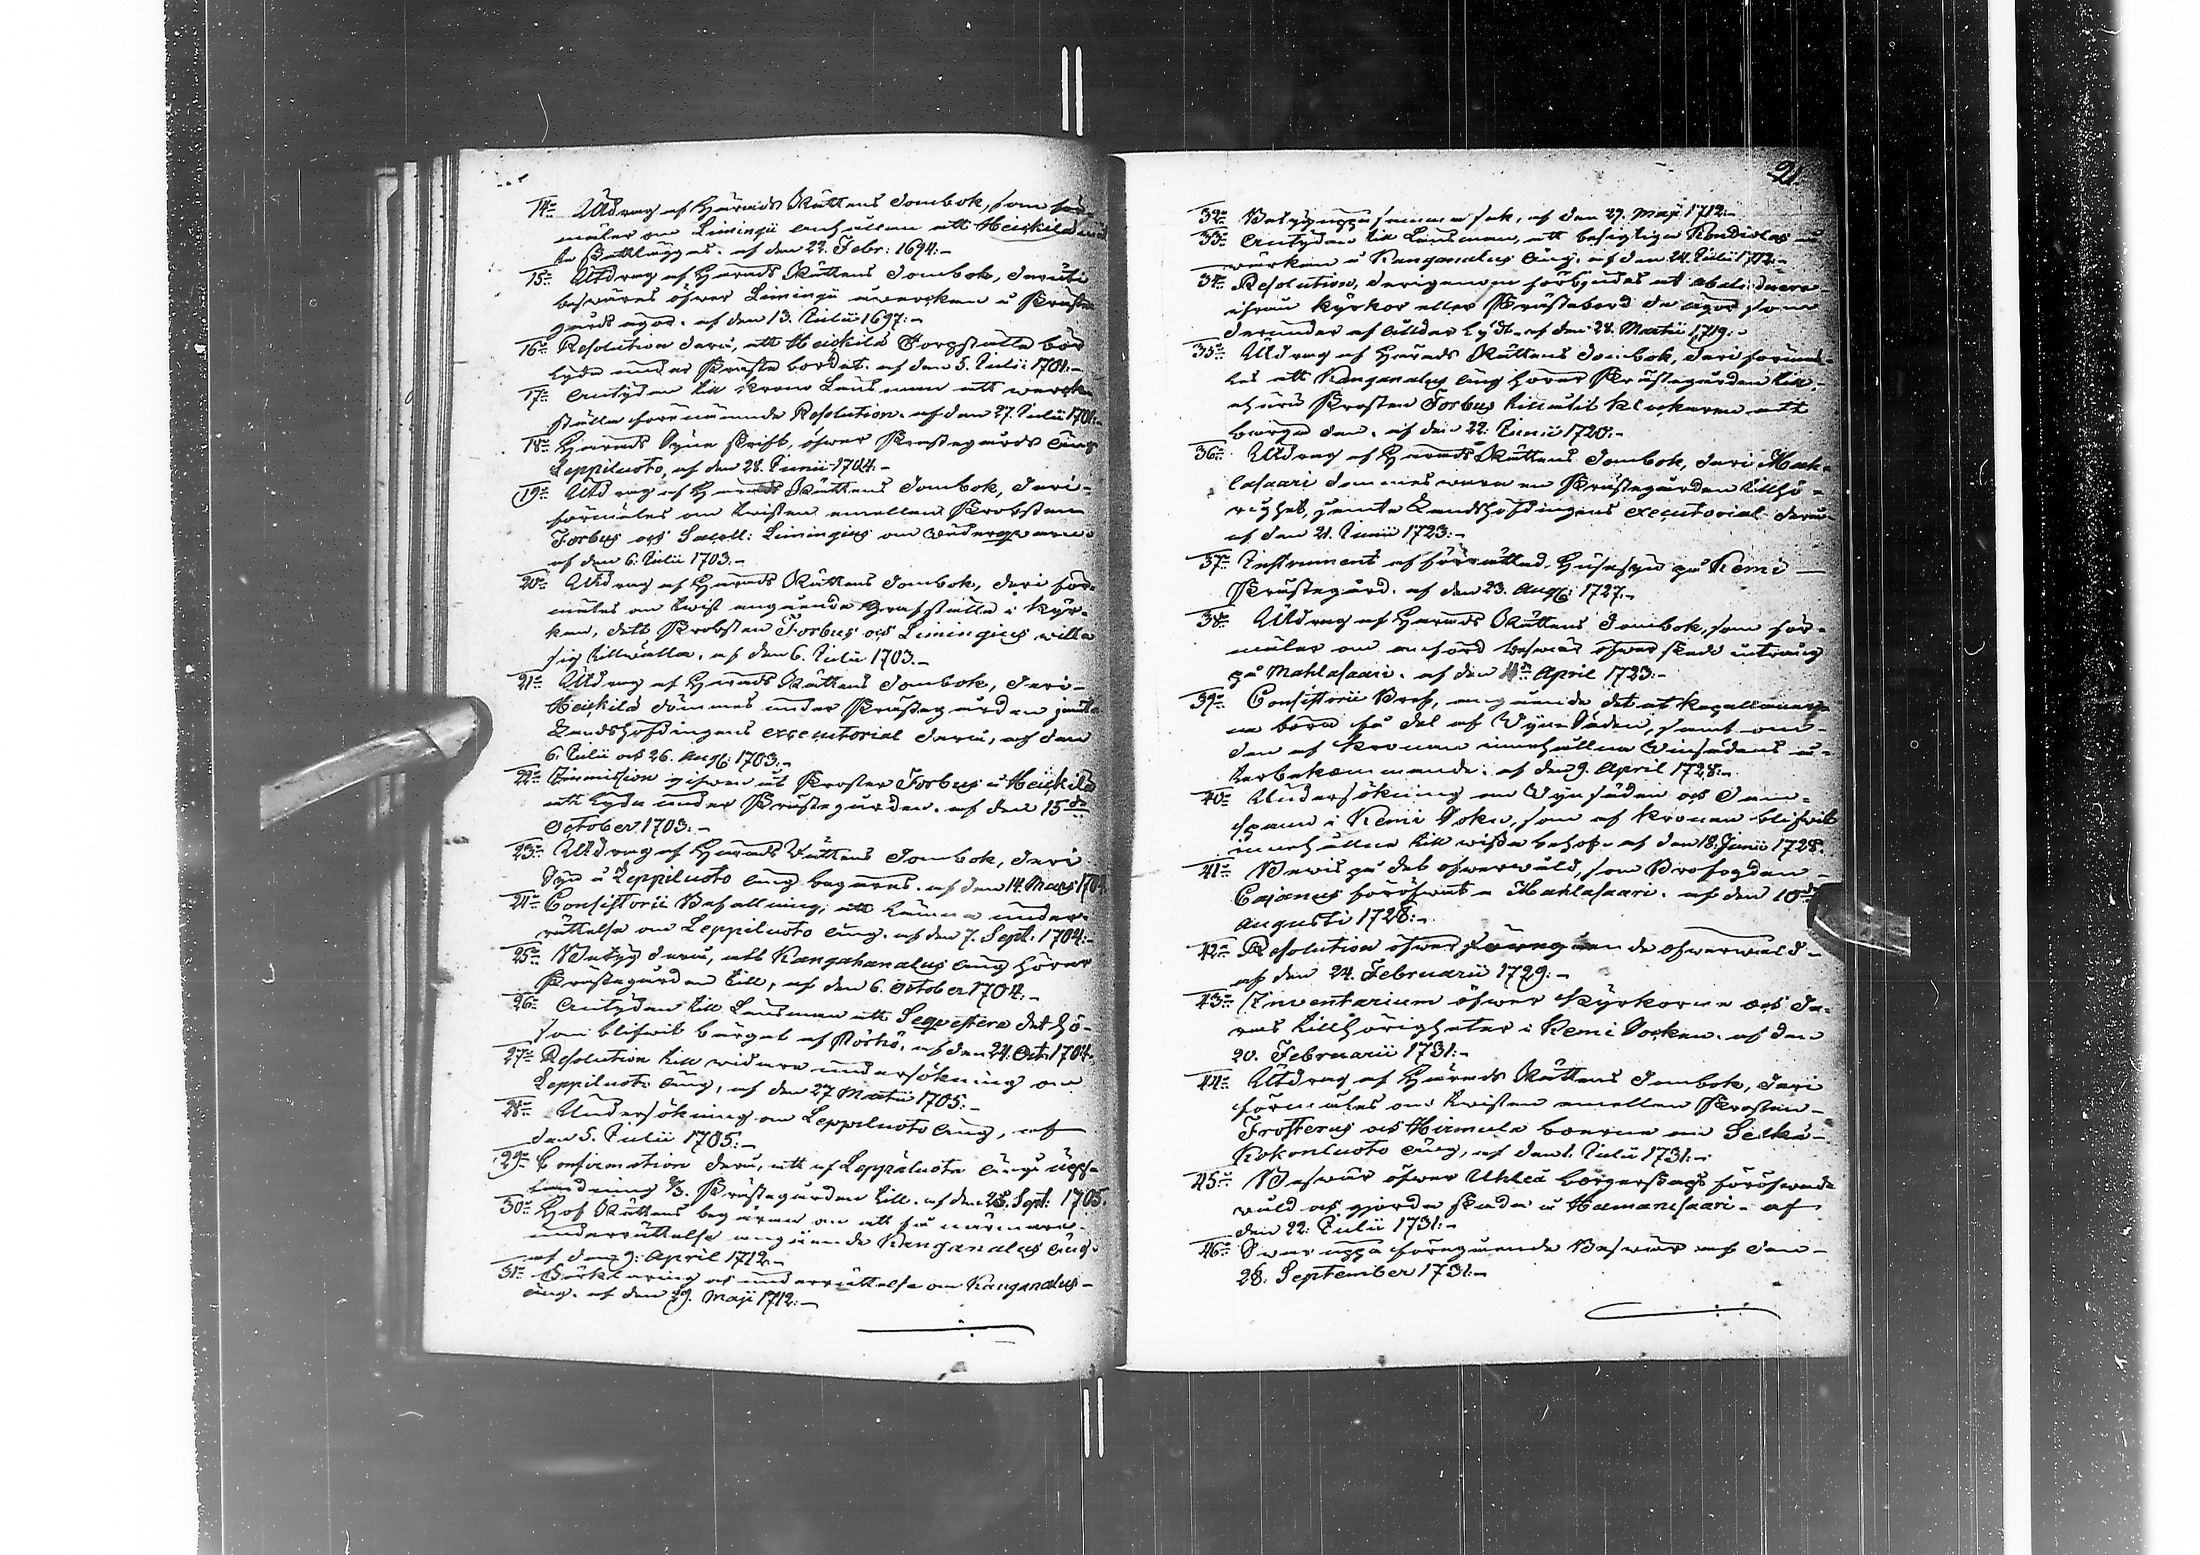 14:o Utdrag af Härads Rättens Dombok, som för-
mäler om Limingii anhållan att Heickilä
skattläggas. af den 22. Febr: 1694.
15:o Utdrag af Härads Rättens Dombok, deruti
beswäres öfwer Limingii åwerckan å Präste
gårds ägor. af den 13. Julii 1697.
16:o Resolution derå, att Heickilä Torpställe bör
lyda under Prästebordet. af den 5. Julii 1701.
17:o Antydan till Krono Länsman att werck-
ställa förenämnde Resolution. af den 27. Julii 1701.
18:o Härads Syne Skrift, öfwer Prästegårds äng
Leppiluoto, af den 28. Junii 1704.
19:o Utdrag af Härads Rättens Dombok, deri-
förmäles om twisten emellan Probsten
Forbus och Sacell: Limingius om
af den 6. Julii 1703.
20:o Utdrag af Härads Rättens Dombok, deri för-
mäles om twist angående Grafställe i Kyr-
kan, dett Probsten Forbus och Limingius willa
sig tillwälla. af den 6. Julii 1703.
21:o Utdrag af Härads Rättens Dombok, deri-
Heickilä dömmes under Prästegården jemte
Landshöfdingens executorial derå, af den
6. Julii och 26. Aug: 1703.
22:o Immission gifwen åt Prosten Forbus å Heickilä
att lyda under Prästegården. af den 15:de
October 1703.
23:o Utdrag af Härads Rättens Dombok, deri
Syn å Leppiluoto äng begäres. af den 14. Martii
24:o Consistorii Befallning, att lämna under-
rättelse om Leppiluoto äng. af den 7. Sept. 1704.
25:o Betyg derå, att Kangahanalus äng hörer
Prästegården till, af den 6. October 1704.
26:o Antydan till Länsman att Sequestera det hö-
som blifwit bärgat af af den 24. Oct. 1704.
27:o Resolution till widare undersökning om
Leppiluoto äng, af den 27 Martii 1705.
28:o Undersökning om Leppiluoto äng, af
den 5. Julii 1705.
29:o Confirmation derå, att af Leppäluoto ängs upp-
2/3. Prästegården till. af den 28. Sept: 1705.
30:o Hof Rättens begäran om att få närmare
underrättelse angående Kanganalus äng.
af den 9. April 1712.
31:o Förklaring och underrättelse om Kanganalus
äng. af den 29. Maji 1712.
21.
32:o Betyg uppå samma sak, af den 29. Maji 1712.
33:o Antydan till Länsman, att besigtiga å
wärkan å Kanganalus äng. af den 24. Julii 1712.
34:o Resolution, derigenom förbjudes at
ifrån Kyrkor eller Prästebord de ägor som
derunder af ålder lydt. af den 28. Martii 1719.
35:o Utdrag af Härads Rättens Dombok, deri förmä-
les att Kanganalus äng hörer Prästegården till,
ehuru Prosten Forbus tillåtit klockaren att
bärga den. af den 22. Junii 1720.
36:o Utdrag af Härads Rättens Dombok, deri Mah-
lasaari dömmes wara en Prästegården tillhö-
righet, jemte Landshöfdingens executorial derå
af den 21. Junii 1723.
37:o Instrument af förrättad Husesyn på Kemi
Prästegård. af den 23. Aug: 1727.
38:o Utdrag af Härads Rättens Dombok, som för-
mäler om anförd beswär öfwer intrång
på Mahlasaari. af den April 1723.
39:o Consistorii Bref, angående det at Kapellanerna
böra få del af Wynsäden, samt om
den af Kronan innehållna Winsädens å-
terbekommande. af den 9. April 1728.
40:o Undersökning om Wynsäden och Dam-
i Kemi Sokn, som af Kronan blifwit
innehållne till wissa behof. af den 18. Junii 1728.
41:o Bewis på det öfwerwåld, som Profogden
Cajanus föröfwat a Mahlasaari. af den 10:de
Augusti 1728.
42:o Resolution öfwer föregående öfwerwåld
af den 24. Februarii 1729.
43:o Inventarium öfwer Kyrkorne och de-
ras tillhörigheter i Kemi Socken. af den
20. Februarii 1731.
44:o Utdrag af Härads Rättens Dombok, deri
förmäles om twisten emellan Prosten
Frosterus och Hirmula bönerne om Selkä-
Kokonluoto äng, af den 1. Julii 1731.
45:o Beswär öfwer Uhleå borgerskaps föröfwade
wåld och gjorde skada å Hamarisaari. af
den 22. Julii 1731.
46:o Swar uppå föregående Beswär af den
28. September 1731.